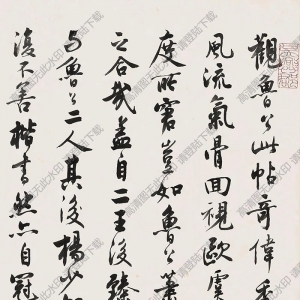 觀魯公此帖奇偉秀
風流氣骨回視歐虞
度所窘豈如魯公蕭
之合哉蓋自二王後臻
与魯公二人其後楊少
復不善楷書然亦自冠